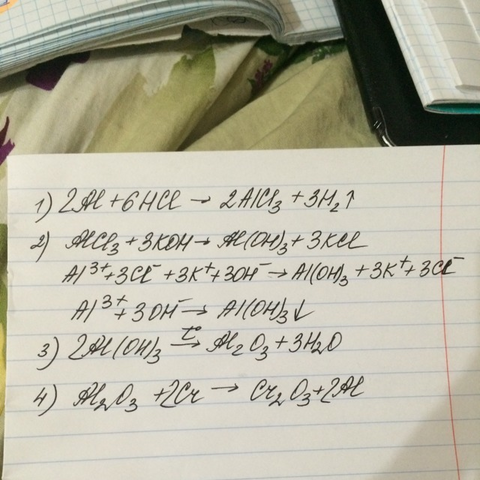 1) 2Al + 6HCl → 2AlCl₃ + 3H₂↑
2) AlCl₃ + 3KOH → Al(OH)₃ + 3KCl
Al³⁺ + 3Cl⁻ + 3K⁺ + 3OH⁻ → Al(OH)₃ + 3K⁺ + 3Cl⁻
Al³⁺ + 3OH⁻ → Al(OH)₃↓
3) 2Al(OH)₃ →t° Al₂O₃ + 3H₂O
4) Al₂O₃ + 2Cr → Cr₂O₃ + 2Al